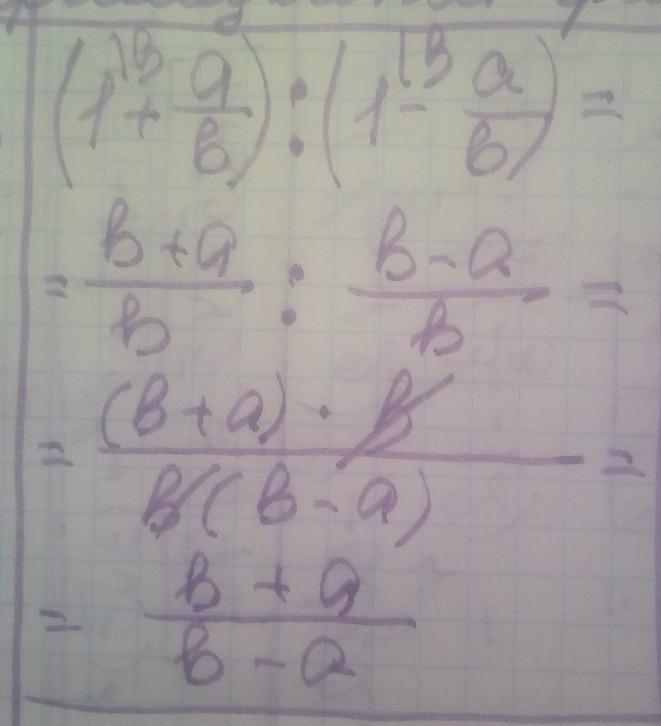 (1 + a/b) : (1 - a/b) =
= b + a / b : b - a / b =
= (b + a) · b / b (b - a) =
= b + a / b - a